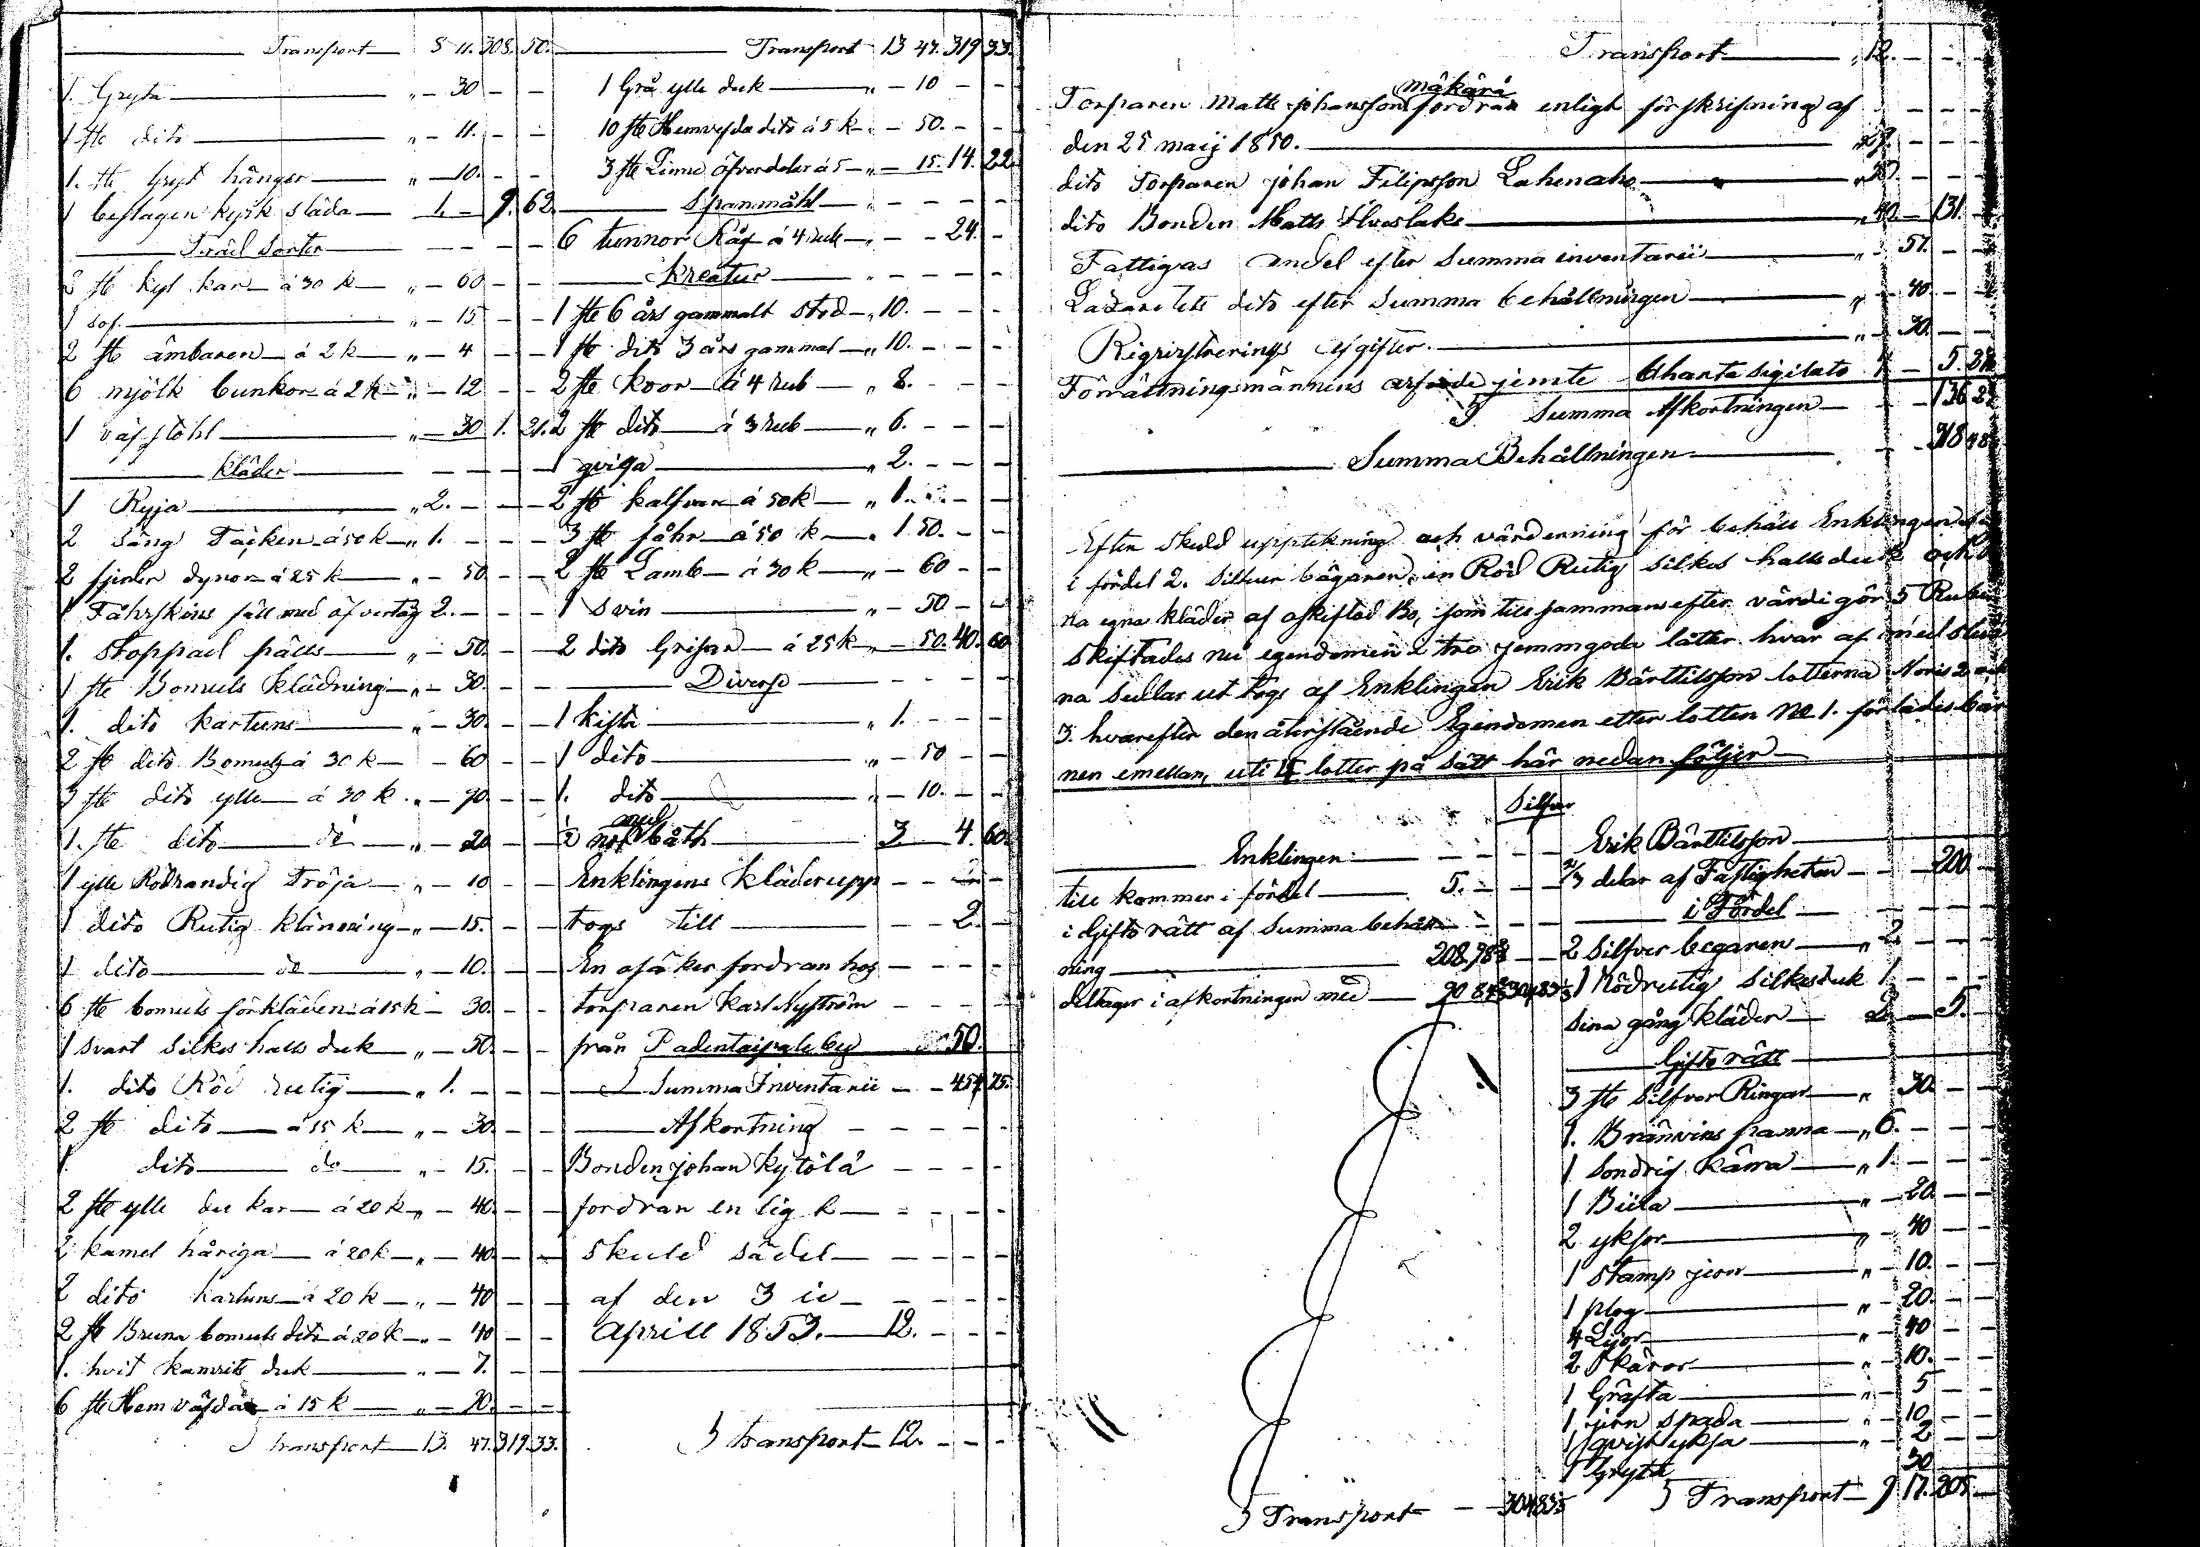 Transport 8 11. 308. 50.
1. Gryta „ – 30 – –
1 st dito „ – 11. – –
1. st Gryt hänger „ – 10. – –
1 beslagen kyrk släda 1. – 9. 62.
Träd Sorter – – – –
2 st kyl kar á 30 k „ – 60 – –
1 so „ – 15 – –
2 st ämbaren á 2 k „ – 4 – –
6 mjölk bunkor á 2 k „ – 12 – –
1 väfstohl „ – 30 1. 21.
kläder – – – –
1 Ryja „ 2. – – –
2 Säng Täcken á 50 k „ 1. – – –
2 fjeder dynor á 25 k „ – 50 – –
1 Fåhrskins fäll med öfvertåg 2. – – –
1. Stoppad fälls „ – 50. – –
1 st Bomuls klädning „ – 30. – –
1. dito kartuns „ – 30. – –
2 st dito Bomuls á 30 k – 60 – –
3 st dito ylle á 30 k „ – 90. – –
1. st dito do „ – 20 – –
1 ylle Rödrandig tröja „ – 10 – –
1 dito Rutig klänning „ – 15. – –
1 dito do „ – 10. – –
6 st bomuls förkläden á 15 k – 30. – –
1 svart silkes hals duk „ – 50. – –
1. dito Röd rutig „ 1. – – –
2 st dito á 15 k „ – 30. – –
1. dito do „ – 15. – –
2 st ylle du kar á 20 k „ – 40. – –
2 kamel håriga á 20 k „ – 40. – –
2 dito kartuns á 20 k „ – 40 – –
2 st Bruna bomuls dito á 20 k „ – 40 – –
1. hvit kamrits duk „ – 7. – –
6 st Hem väfda á 15 k „ – 90. – –
Transport 13. 47. 319. 33.
Transport 13 47. 319 33.
1 Grå ylle duk „ – 10 – –
10 st Hemvefda dito á 5 k „ – 50. – –
3 st Linne öfverdelar á 5 „ – 15. 14. 22.
Spanmåhl „ – – –
6 tunnor Råg á 4 rub „ – – 24. –
Kreatur „ – – –
1 st 6 års gammalt stod „ 10. – – –
1 st dito 3 års gammal „ 10. – – –
2 st koor á 4 rub „ 8. – – –
2 st dito á 3 rub „ 6. – – –
1 qviga „ 2. – – –
2 st kalfvar á 50 k „ 1. – – –
3 st fåhr á 50 k „ 1 50. – –
2 st Lamb á 30 k „ – 60 – –
1 Svin „ – 50 – –
2 dito Grisar á 25 k „ – 50. 40. 60
Diverse – – – –
1 kista „ 1. – – –
1 dito „ – 50 – –
1. dito „ – 10. – –
½ not med båth 3. – 4. 60.
Enklingens kläder upp – – –
togs till – – 2. –
En osäker fordran hos – – –
torparen Karl Nyström – – –
från Padentaipale by 50.
Summa Inventarii – – 454 75.
Afkortning – – – –
Bonden johan Kytölä – – –
fordran en lig t – – –
skuld sädel – – –
af den 3 ie – – –
Aprill 1853. 12. – – –
Transport 12. – – –
Transport „ 12. – – –
mäkärä
Torparen Matts johansson fordran enligt förskrifning af – – –
den 25 maij 1850. „ 29. – –
dito Torparen johan Filipsson Lahenaho „ 50. – –
dito Bonden Matts Alvoslake „ 40. – 131. –
Fattigas andel efter Summa inventarii „ – 57. – –
Lazaretets dito efter Summa behållningen „ – 40 – –
Rigristrerings afgifter. „ – 30. – –
Förrättningsmännens arfvode jemte Charta Sigilata 4 – 5. 27
Summa Afkortningen – – 136 27
Summa Behållningen – – 318 48
Efter skedd upptekning och värdenning för behåll Enklingen
i fördel 2. silfver bägaren, en Röd Rutig silkes halls duck och
na egna kläder af oskiftad Bo, som till samman efter värdi gör 5 Rub
Skiftades nu egendomen i tre jemmgoda låtter hvar af med slu
na Sedlar ut togs af Enklingen Erik Bärttilsson lotterna Noris 2 och
3. hvarefter den återstående Egendomen etter lotten No 1. förlades bar
nen emellan, uti 4 lotter på sätt här nedan följer
Silfver
Enklingen – – – –
till kommer i fördel 5. – – –
i Giftorätt af Summa behåll – –
ning 208. 98 – –
deltager i afkortningen med 90 84 304 83
Transport – – 304 83
Erik Bärttilsson
2/3 delar af Fastigheten – – 200 –
i Fördel – – – –
2 Silfver begaren „ 2 – – –
1 Rödrutig Silkesduk 1. – – –
Sina gång kläder 2 – 5. –
Gifto rätt
3 st Silfver Ringar „ – 30. – –
1. Brännvins panna „ 6. – – –
1 Sondrig kärra „ 1. – – –
1 Biila „ – 20. – –
2 yksor „ – 40 – –
1 Stamp jern „ – 10. – –
1 plog „ – 20. – –
4 Lijor „ – 40 – –
2 Skäror „ – 10. – –
1 Gräfta „ – 5 – –
1 jern spada „ – 10 – –
1 qvist yksa „ – 2 – –
1 Gryta 30
Transport 9 17. 205 –